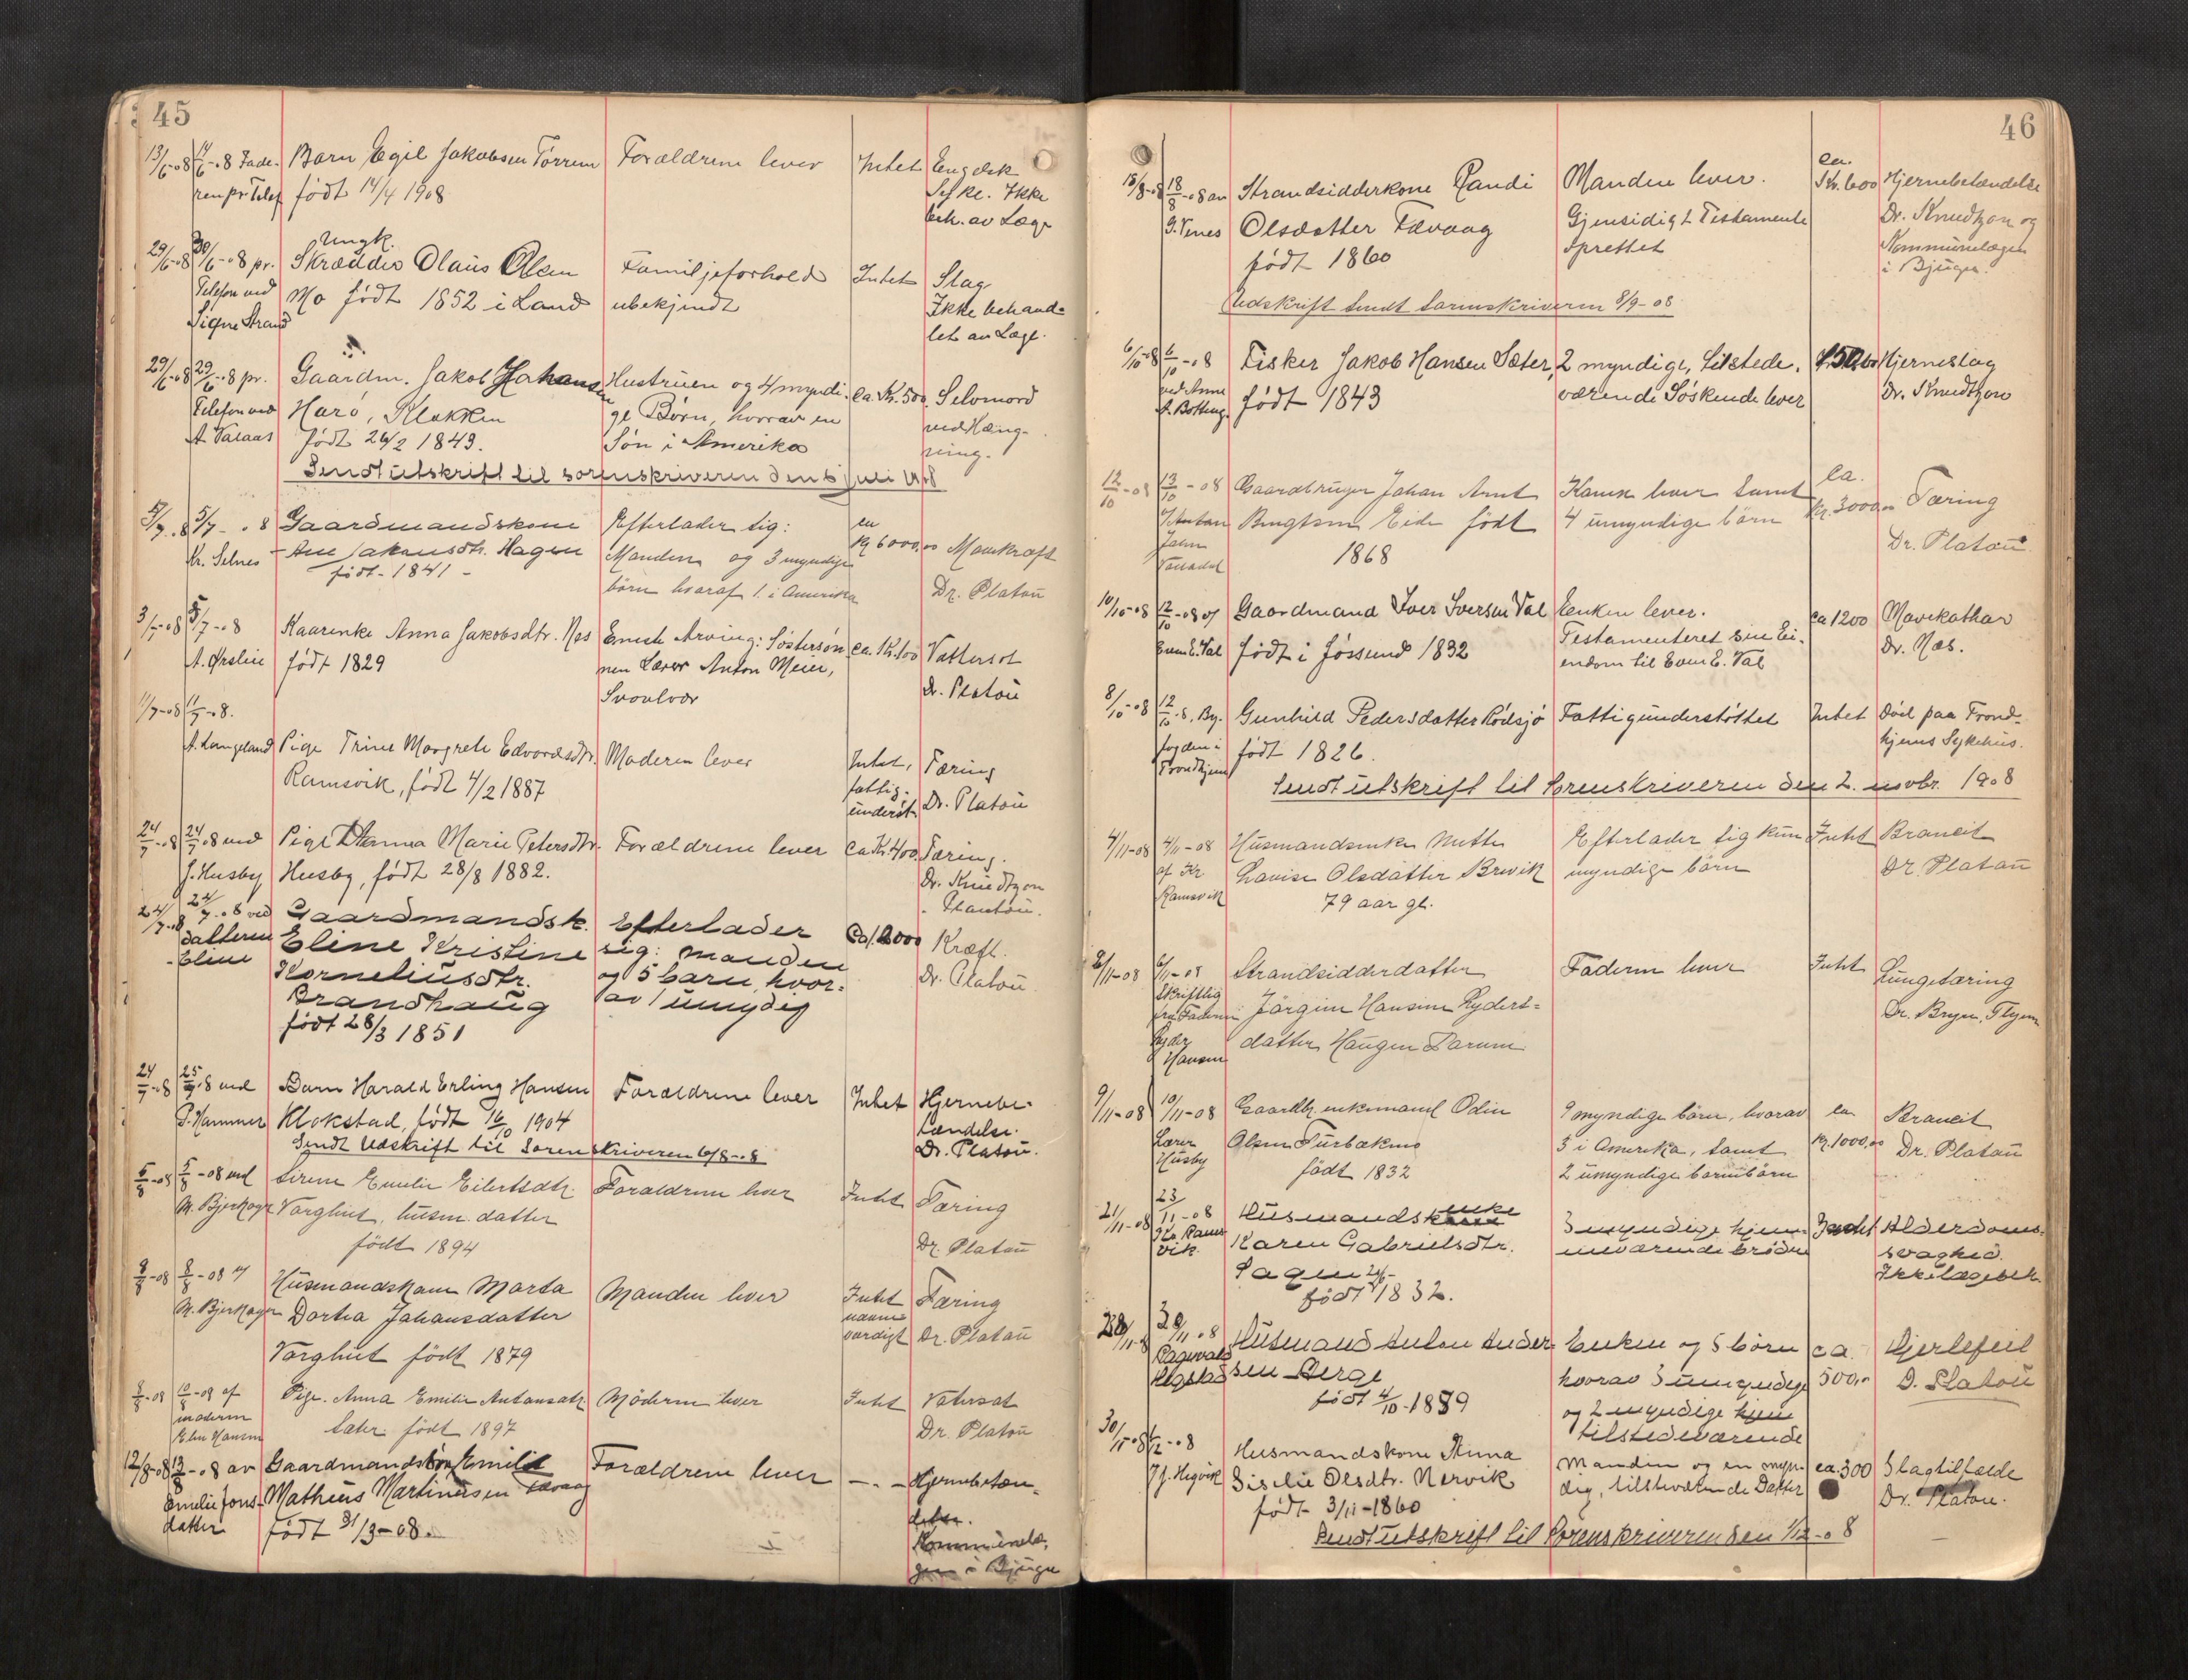 45
13/6-08 14/6-08 Fade- Barn Egil Jakobsen Tørrem Forældrene lever Intet Engelsk
ren pr Telef født 14/4 1908 Syke. Ikke
beh. av Læge
Ungk.
29/6-08 30/6-08 pr. Skrædder Olaus Olsen Familjeforhold Intet Slag
Telefon ved Mo født 1852 i Land ubekjendt Ikke behand-
Signe Strand let av Læge.
29/6-08 29/6-08 pr. Gaardm. Jakob Johansen Hustruen og 4 myndi- Ca. Kr. 500. Selvmord
Telefon ved Harö, Klakken ge Børn, hvorav en ved Hæng-
A. Valaas født 26/2 1843. Søn i Amerika ning.
Sendt utskrift til sorenskriveren den 6 juli 1908
5/7-08 5/7-08 Gaardmandskone Efterlader sig: ca
Kr. Selnes Ane Jakobsdtr. Hagen Manden og 3 myndige Kr 6000,00 Mavekræft
født 1841 - børn hvoraf 1 i Amerika Dr. Platou
3/7-08 5/7-08 Kaarenke Anna Jakobsdtr. Næs Eneste Arving: Søstersøn- ca. Kr. 100 Vattersot
A. Ørsleie født 1829 nen Lærer Anton Meier, Dr. Platou
Svovlvær
11/7-08 11/7-08.
A. Langeland Pige Trine Margrete Edvardsdtr. Moderen lever Intet, Tæring
Ramsvik, født 4/2 1887 fattig- Dr. Platou
underst.
24/7-08 24/7-08 ved Pige Hanna Marie Petersdtr. Forældrene lever Ca Kr. 400. Tæring.
J. Husby Husby, født 28/8 1882. Dr. Knudtzon
- Platou.
24/7-08 24/7-08 ved Gaardmandsk. Efterlader Ca. 2000 Kræft.
datteren Eline Kristine sig: manden Dr. Platou.
Eline Korneliusdtr. og 5 barn, hvor-
Brandhaug av 1 umydig
født 28/3 1851
24/7-08 25/7-08 ved Barn Harald Erling Hansen Forældrene lever Intet Hjernebe-
P. Hammer Klokstad, født 16/10 1904 tændelse.
Sendt Udskrift til Sorenskriveren 6/8-08 Dr. Platou.
5/8-08 5/8-08 ved Sirene Emelie Eilertsdtr. Forældrene lever Intet Tæring
M. Bjerkager Varghiet, husm. datter
født 1894 Dr. Platou
8/8-08 8/8-08 af Husmandskone Marta Manden lever Intet Tæring
M. Bjerkager Dortea Johansdatter nævne- Dr. Platou
værdigt
Varghiet født 1879
8/8-08 10/8-08 af Pige. Anna Emilie Antonsdtr. Moderen lever Intet Vatersot
moderen Sæter født 1897 Dr. Platou
Elen Hansen
12/8-08 13/8-08 av Gaardmandsbarn Emil Forældrene lever - . - Hjernebetæn-
Emelie Jons- Matheus Martinussen Fævaag delse.
datter født 31/3-08. Kommunelæ-
gen i Bjugn
46
18/8-08 18/8-08 av Strandsidderkone Randi Manden lever. ca. Kr. 600 Hjernebetændelse
G. Venes Olsdatter Fævaag Gjensidigt Testamente Dr. Knudtzon og
født 1860 oprettet Kommunelægen
i Bjugn.
Udskrift sendt Sorenskriveren 8/9-08
6/10-08 6/10-08 Fisker Jakob Hansen Sæter, 2 myndige, tilstede- Hjerneslag
ved Anne født 1843 værende Søskende lever Dr. Knudtzon
A. Botteng.
12/10-08 13/10-08 Gaardbruger Johan Arnt Konen lever samt ca.
Bengtsen Eide født 4 umyndige børn Kr. 3000,00 Tæring
1868 Dr. Platou
10/10-08 12/10-08 af Gaardmand Iver Iversen Val Enken lever. ca 1200 Mavekathar
Even E. Val født i Jøssund 1832 Testamenteret sin Ei- Dr. Næs.
endom til Even E. Val
8/10-08 12/10-08, By- Gunhild Pedersdatter Rödsjö Fattigunderstöttet Intet Död paa Trond-
fogden i født 1826. hjems Sykehus.
Trondhjem
Sendt utskrift til Sorenskriveren den 2. novbr. 1908
4/11-08 4/11-08 Husmandsenke Mette Efterlader sig kun Intet Brancit
af Kr Lovise Olsdatter Brevik myndige börn Dr Platou
Ramsvik 79 aar gl.
2/11-08 6/11-08 Strandsidderdatter Faderen lever Intet Lungetæring
Skriftlig Jörgine Hansine Lyders- Dr. Bryn, Flyen
fra Faderen datter Haugen Tarum
Lyder Hansen
9/11-08 10/11-08 Gaardbr. enkemand Odin 9 myndige börn, hvorav ca. Brancit
Lærer Olsen Turbakmo 3 i Amerika, samt Kr. 1000,00 Dr. Platou
Husby født 1832 2 umyndige barnebörn
21/11-08 23/11-08 Husmandsenke 3 myndige hjem- Intet Alderdoms-
Kr. Rams- Karen Gabrielsdtr. meværende brödre svaghed.
vik født 1832. Ikke lægebeh.
28/11-08 30/11-08 Husmand Anton Ander- Enken og 5 börn ca. Hjertefeil
sen Berge hvorav 3 umyndige 500,- D. Platou
født 4/10-1889 og 2 myndige hjem
tilstedeværende
30/11-08 1/12-08 Husmandskone Anna Manden og en myn- ca. 300 Slagtilfælde
J. Hegvik Siselie Olsdtr. Nervik dig, tilsteværende Datter Dr. Platou.
født 3/11-1860
Sendt utskrift til Sorenskriveren den 1/12-08